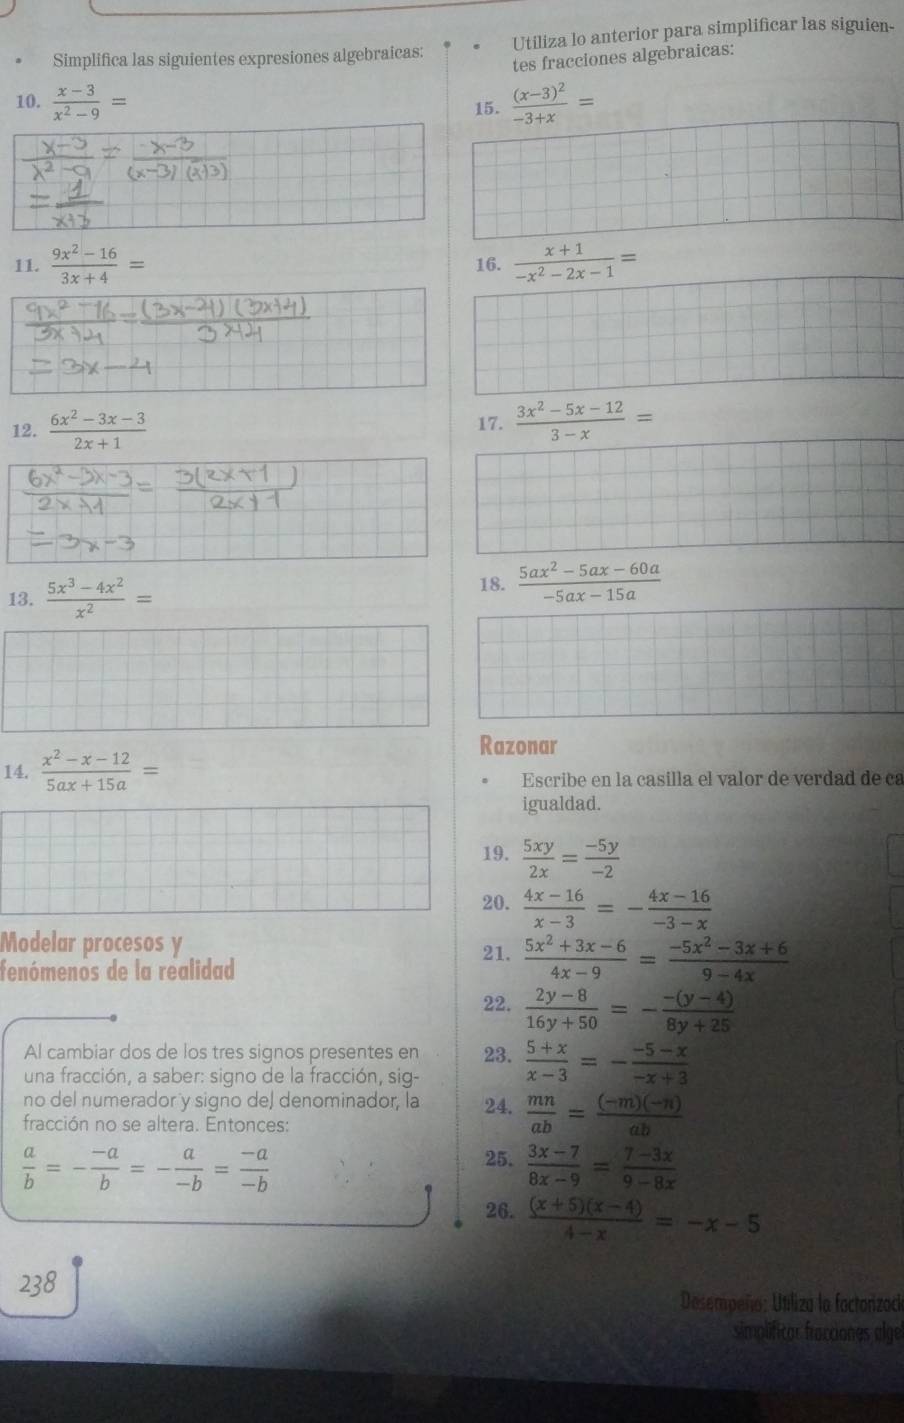 • Simplifica las siguientes expresiones algebraicas:
10. \frac{x-3}{x^2-9} =
\frac{x-3}{x^2-9} = \frac{x-3}{(x-3)(x+3)}
= \frac{1}{x+3}
11. \frac{9x^2-16}{3x+4} =
\frac{9x^2-16}{3x+4} = \frac{(3x-4)(3x+4)}{3x+4}
= 3x-4
12. \frac{6x^2-3x-3}{2x+1}
\frac{6x^2-3x-3}{2x+1} = \frac{3(2x+1)}{2x+1}
= 3x-3
13. \frac{5x^3-4x^2}{x^2} =
14. \frac{x^2-x-12}{5ax+15a} =
Modelar procesos y
fenómenos de la realidad
Al cambiar dos de los tres signos presentes en
una fracción, a saber: signo de la fracción, sig-
no del numerador y signo del denominador, la
fracción no se altera. Entonces:
\frac{a}{b} = -\frac{-a}{b} = -\frac{a}{-b} = \frac{-a}{-b}
238
• Utiliza lo anterior para simplificar las siguien-
tes fracciones algebraicas:
15. \frac{(x-3)^2}{-3+x} =
16. \frac{x+1}{-x^2-2x-1} =
17. \frac{3x^2-5x-12}{3-x} =
18. \frac{5ax^2-5ax-60a}{-5ax-15a}
Razonar
• Escribe en la casilla el valor de verdad de ca
igualdad.
19. \frac{5xy}{2x} = \frac{-5y}{-2}
20. \frac{4x-16}{x-3} = -\frac{4x-16}{-3-x}
21. \frac{5x^2+3x-6}{4x-9} = \frac{-5x^2-3x+6}{9-4x}
22. \frac{2y-8}{16y+50} = -\frac{-(y-4)}{8y+25}
23. \frac{5+x}{x-3} = -\frac{-5-x}{-x+3}
24. \frac{mn}{ab} = \frac{(-m)(-n)}{ab}
25. \frac{3x-7}{8x-9} = \frac{7-3x}{9-8x}
26. \frac{(x+5)(x-4)}{4-x} = -x-5
Desempeño: Utiliza la factorizaci
simplificar fracciones alge